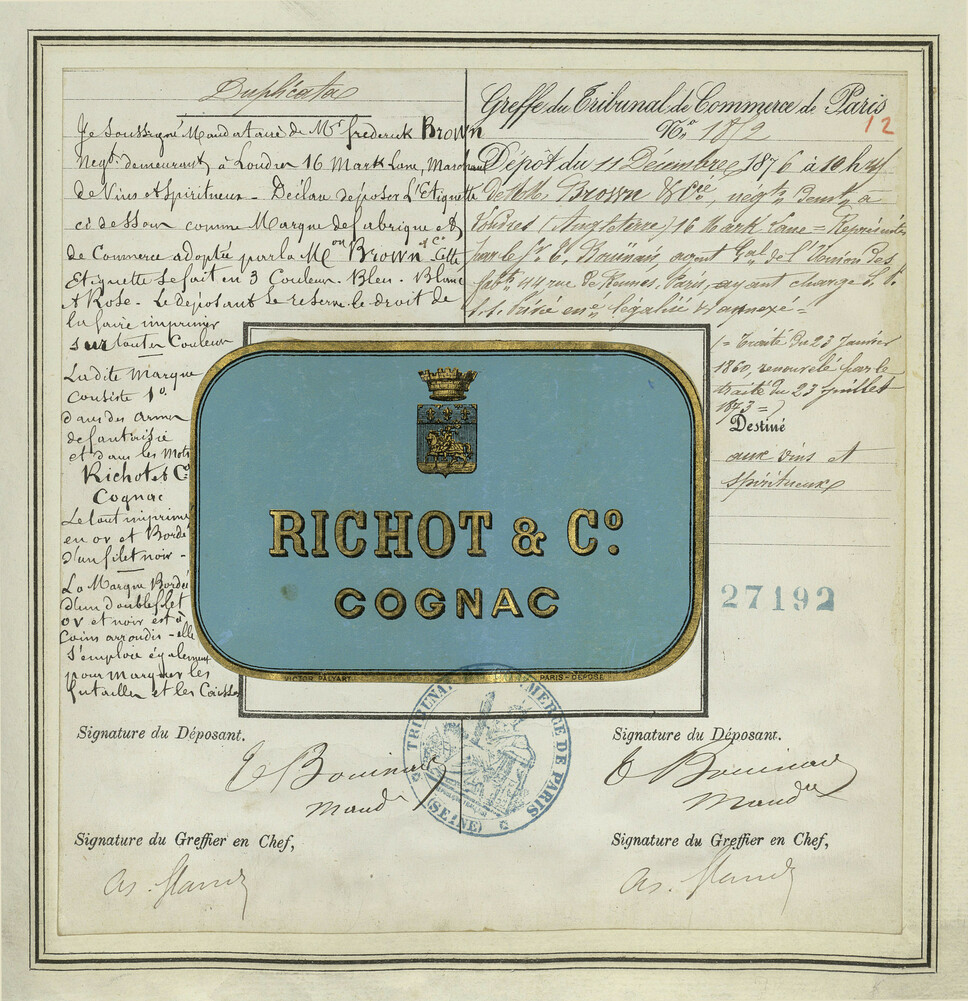 Duplicata
Je Soussigné Mandataire de Mr. frederick Brown
Negt. demeurant à Londres 16 Mark Lane, Marchand
de Vins et Spiritueux - Déclare déposer L'Etiquette
ci dessous comme Marque de fabrique et
de Commerce adoptée par la Mon Brown & Cie. Cette
Etiquette se fait en 3 Couleurs. Bleu. Blanc
et Rose. Le déposant se reserve le droit de
la faire imprimer
sur toutes Couleurs
La dite Marque
Consiste 1o.
dans des armes
de fantaisie
et dans les Mots
Richot et Co
Cognac
Le tout imprimé
en or et Bordé
d'un filet noir -
La Marque Bordée
d'un double filet
or et noir est à
Coins arrondis - elle
s'emploie également
pour marquer les
futailles et les Caisses
Greffe du Tribunal de Commerce de Paris
No. 1812
12
Dépôt du 11 Décembre 1876 à 10 h
de MM. Brown & Cie, négts. demt. à
Londres (Angleterre) 16 Mark Lane = Représentés
par le Sr. E. Bouinais, agent Gal. de l'Union des
fabts 44 rue de Rennes, Paris, ayant charge
s.s. privé légalisé & annexé =
(= Traité du 23 Janvier
1860, renouvelé par le
traité du 23 Juillet
1873 =)
Destiné
aux vins et
spiritueux
RICHOT & Co.
COGNAC
VICTOR PALYART PARIS - DEPOSÉ
27192
TRIBUNAL DE COMMERCE DE PARIS
(SEINE)
Signature du Déposant.
E Bouinais
Mandre
Signature du Greffier en Chef,
Signature du Déposant.
E Bouinais
Mandre
Signature du Greffier en Chef,